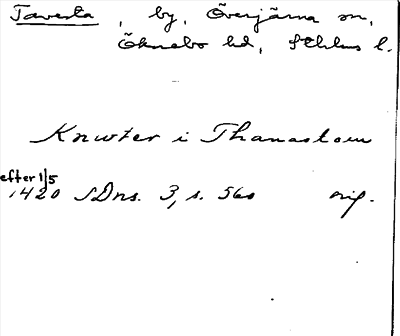 Tavesta, by, Överjärna sn,
Öknebo hd, Sthlms l.
Knwter i Thanastom
efter 1/5
1420 SDns. 3, s. 560 orig.